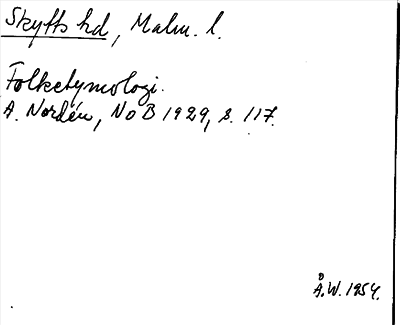 Skytts hd, Malm. l.
Folketymologi.
A. Nordén, NoB 1929, s. 117.
Å.W. 1954.